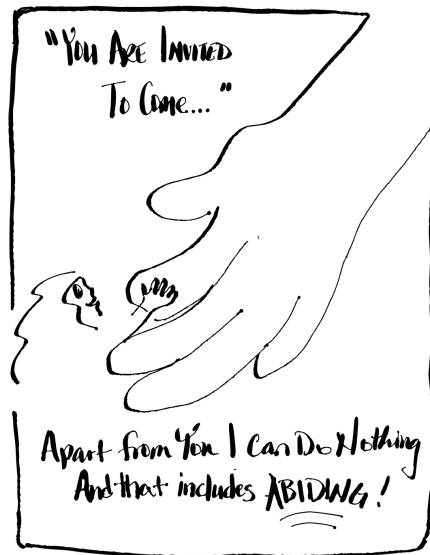 "You Are Invited
To Come..."
Apart from You I Can Do Nothing
And that includes ABIDING!